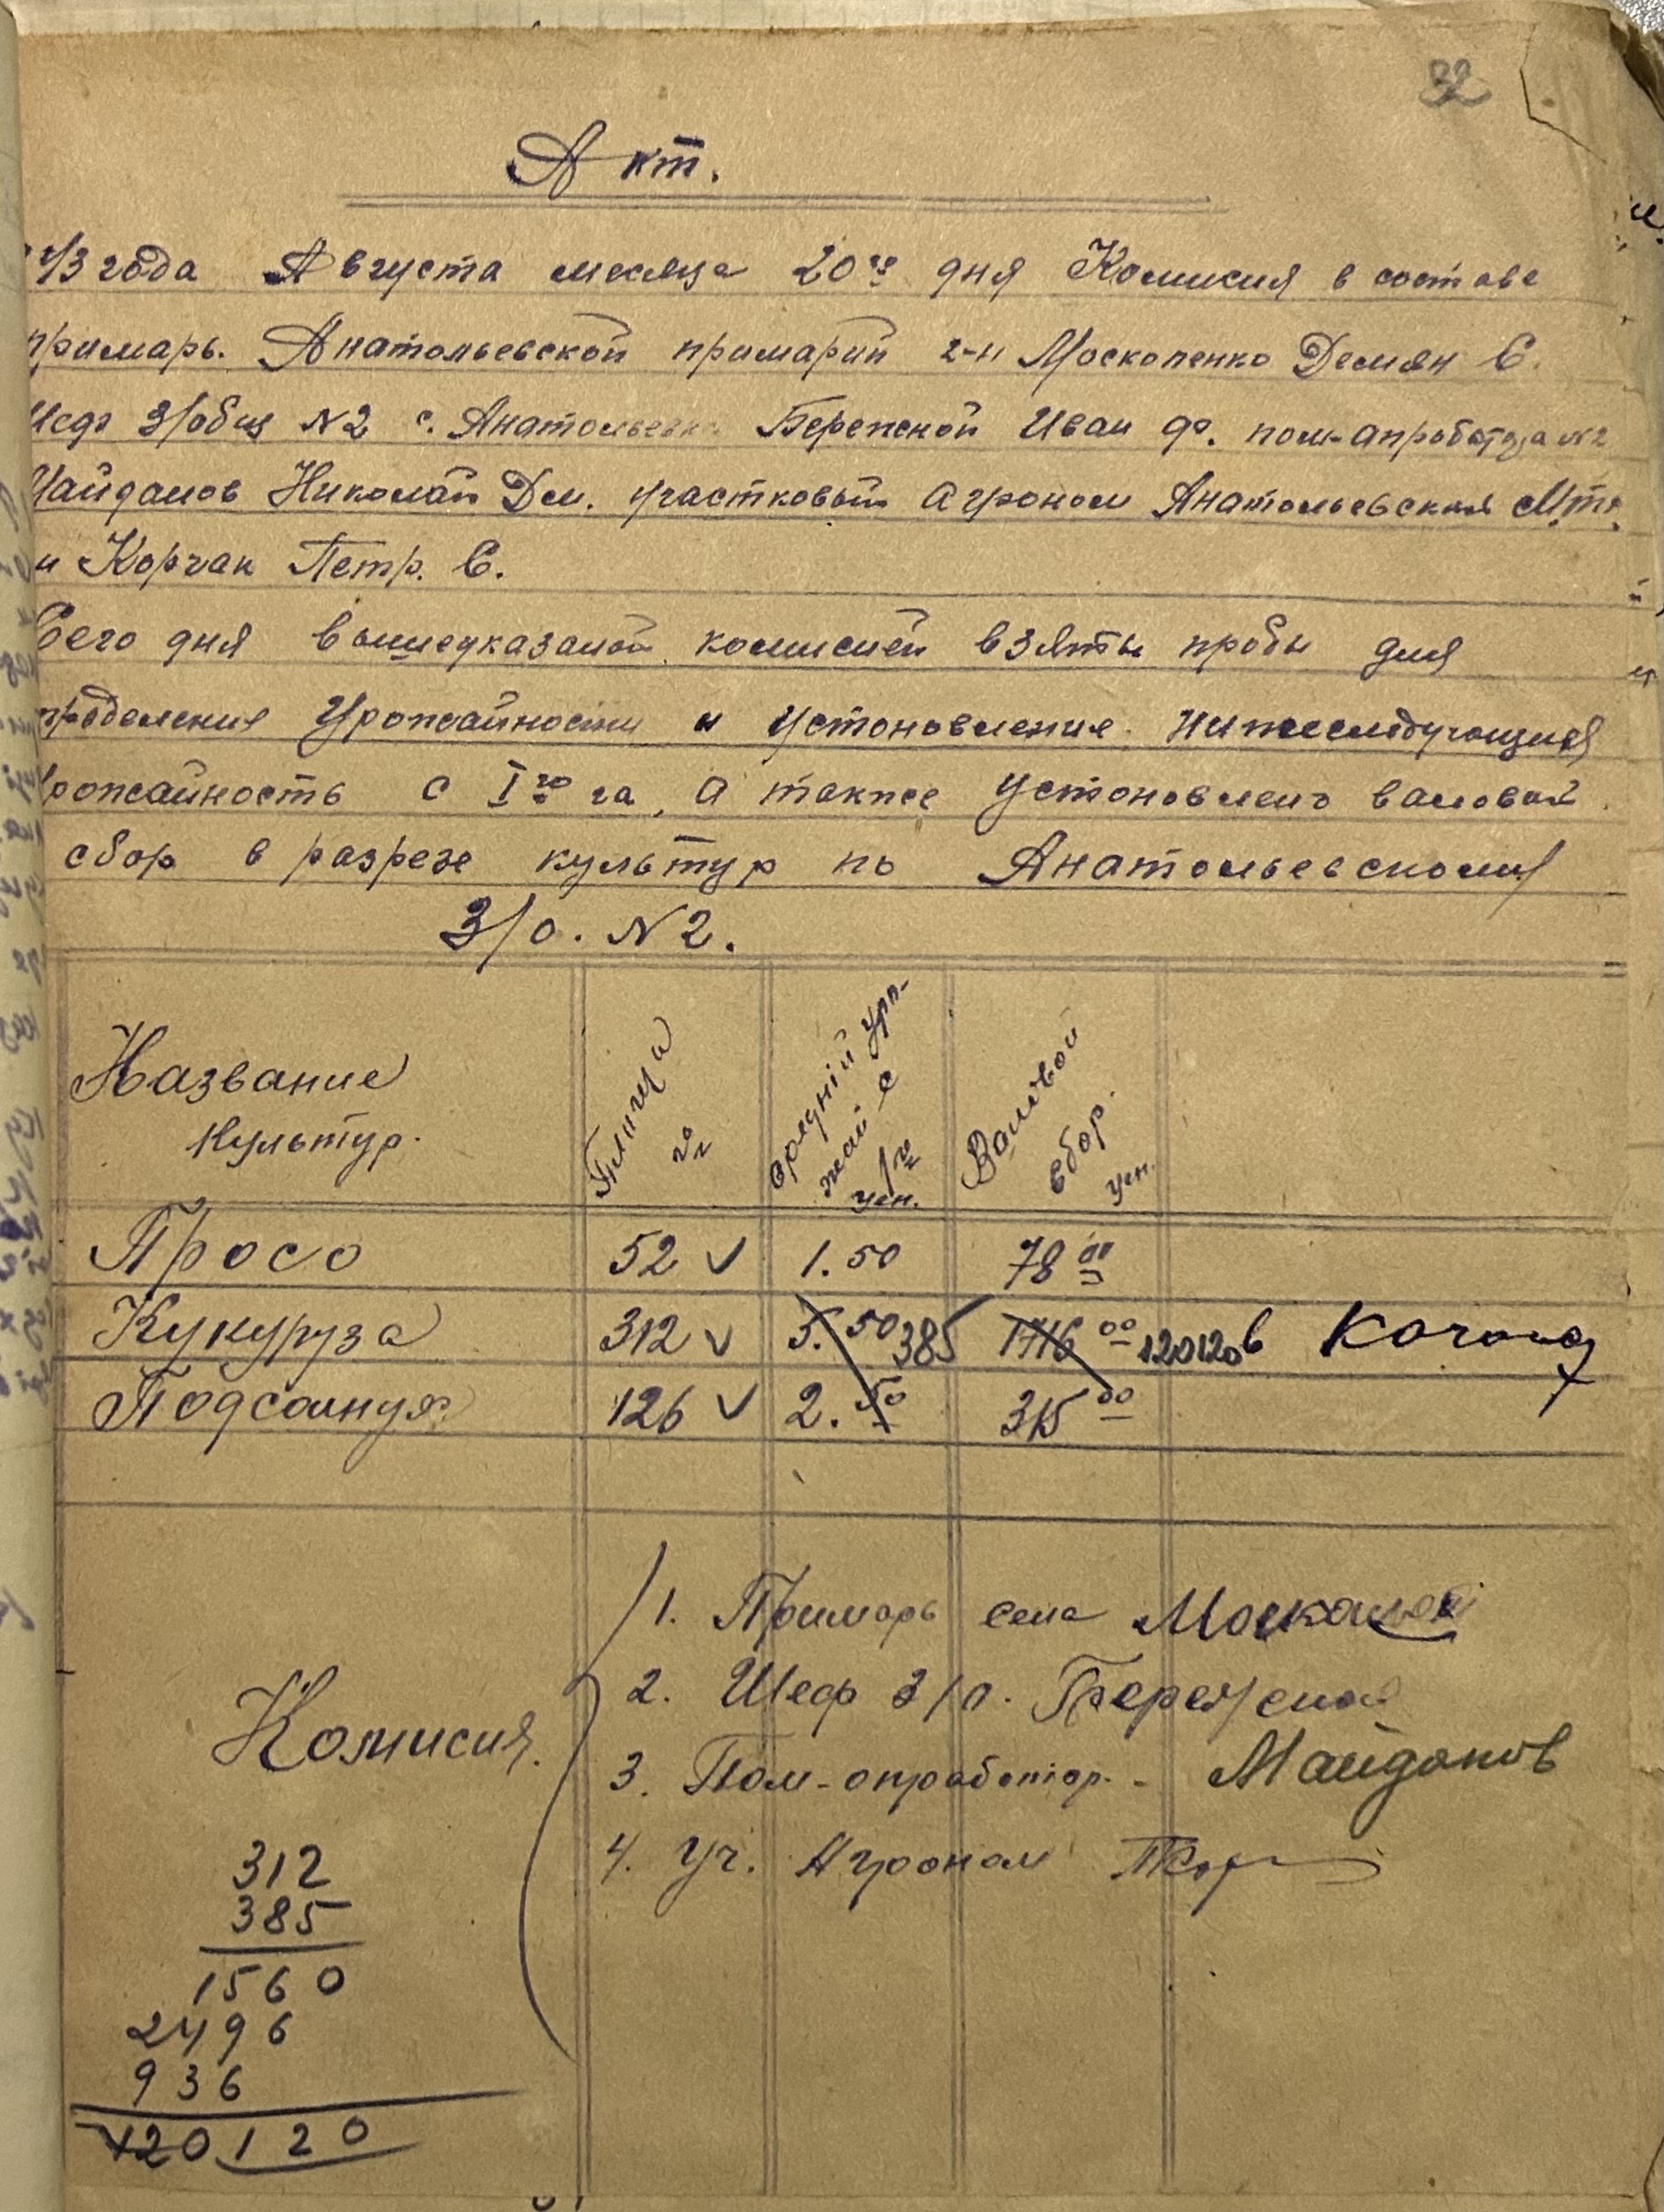 32
Акт.
43 года Августа месяца 20го дня Комисия в составе
примарь. Анатольевской примарии г-н Москопенко Демян Е.
Шеф З/общ №2 с. Анатольевка Бережной Иван Ф. пом-апробатора №2
Майданов Николай Дм. участковый Агроном Анатольевская Мтс.
и Корчак Петр. Е.
Сего дня вышеуказаной комисией взяты пробы для
определения Урожайности и устоновления нижеследующия
урожайность с I го га, а также устоновлено валовой
сбор в разрезе культур по Анатольевскому
З/о. №2.
Название культур.
Площад га
средний уро-жай с 1 га цен.
Валовой сбор. цен.
Просо 52 v 1.50 78 00
Кукуруза 312 v 5.50 385 1716 00 120120 в кочанах
Подсолнух 126 v 2.50 315 00
Комисия.
1. Примарь села
2. Шеф З/о. Бережной
3. Пом-апробатор. - Майданов
4. Уч. Агроном
312
385
1560
2496
936
120120